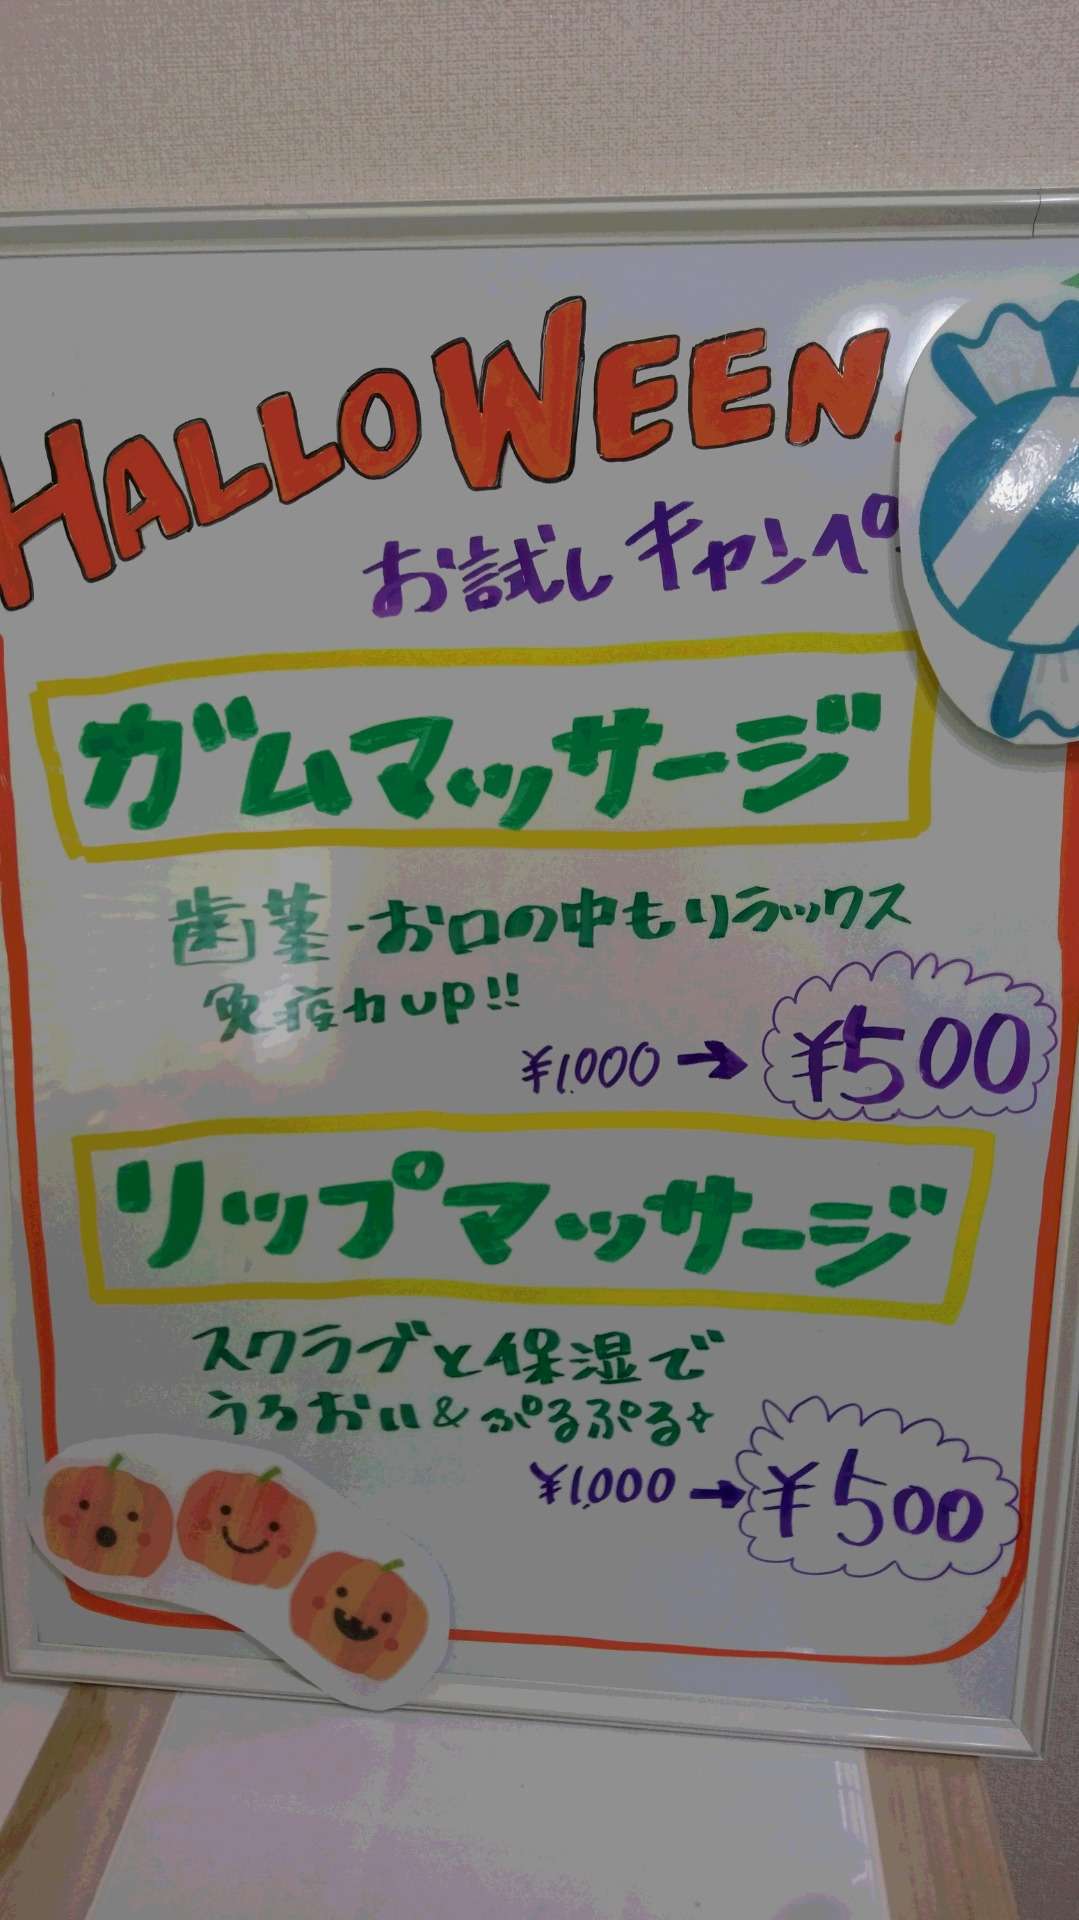 HALLOWEEN
お試しキャンペ
ガムマッサージ
歯茎・お口の中もリラックス
免疫力up!!
¥1,000→¥500
リップマッサージ
スクラブと保湿で
うるおい&ぷるぷる✧
¥1,000→¥500